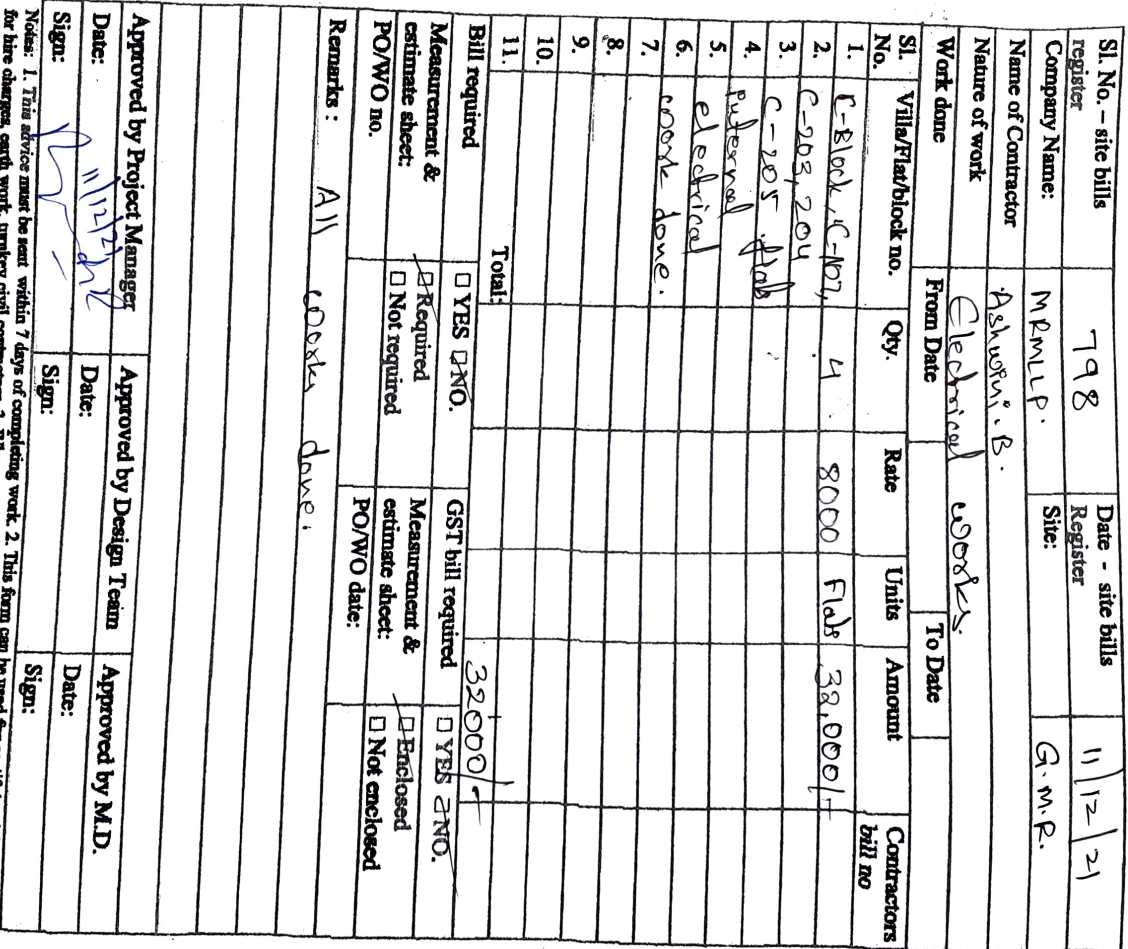 Sl. No. – site bills register 798 Date - site bills Register 11/12/21
Company Name: MRMLLP. Site: G.M.R.
Name of Contractor Ashwini.B.
Nature of work Electrical works.
Work done From Date To Date
Sl. No. Villa/Flat/block no. Qty. Rate Units Amount Contractors bill no
1. C-Block,
2. C-203, 204 4 8000 Flats 32,000/-
3. C-205 flats
4. internal
5. electrical
6. work done.
7.
8.
9.
10.
11.
Total: 32000/-
Bill required □ YES □ NO. GST bill required □ YES □ NO.
Measurement & estimate sheet: □ Required □ Not required Measurement & estimate sheet: □ Enclosed □ Not enclosed
PO/WO no. PO/WO date:
Remarks : All works done.
Approved by Project Manager Approved by Design Team Approved by M.D.
Date: 11/12/21 Date: Date:
Sign: Sign: Sign:
Notes: 1. This advice must be sent within 7 days of completing work. 2. This form can be used
for hire charges, earth work, turnkey civil